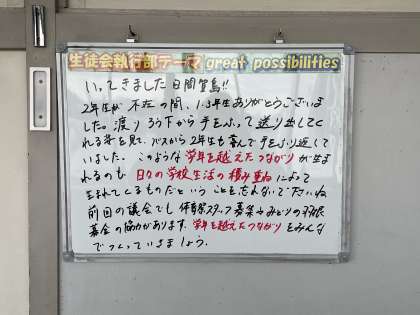 生徒会執行部テーマ great possibilities
いってきました日間賀島!!
2年生が不在の間、1.3年生ありがとうございま
した。渡りろう下から手をふって送り出してく
れる姿を見て、バスから2年生も喜んで手をふり返して
いました。このような学年を越えたつながりが生ま
れるのも日々の学校生活の積み重ねによって
生まれてくるものだということを忘れないで下さいね
前回の議会でも体育祭スタッフ募集やみどりの羽根
募金の協力があります。学年を越えたつながりをみんな
でつくっていきましょう。